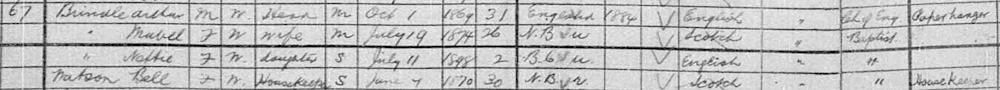 67 Brindle Arthur M W. Head M Oct 1 1869 31 England 1884 English " Ch of Eng. Paperhanger
" Mabel F W wife M July 19 1874 26 N.B. Scotch " Baptist
" Nettie F W. daughter S July 11 1898 2 B.C. English " "
Watson Bell F W. Housekeeper S June 7 1870 30 N.B. Scotch " " Housekeeper